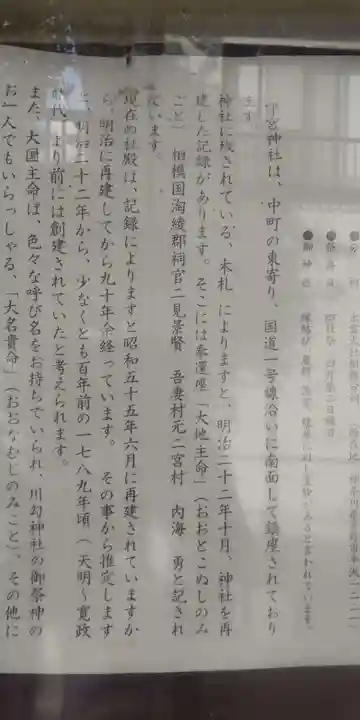 ●祭典日　四月第二日曜日
●御神徳
宮神社は、中町の東寄り、国道一号線沿いに南面して鎮座されており
ます。
神社に残されている、木札 によりますと、明治二十二年十月、神社を再
建した記録があります。そこには奉還座「大地主命」（おおとこぬしのみ
こと）　相模国淘綾郡祠官二見景賢　吾妻村元二宮村　内海　勇と記され
ています。
現在の社殿は、記録によりますと昭和五十五年六月に再建されていますか
ら、明治に再建してから九十年余経っています。　その事から推定します
と、明治二十二年から、少なくとも百年前の一七八九年頃（ 天明～寛政
時代）より前には創建されていたと考えられます。
また、大国主命は、色々な呼び名をお持ちでいられ、川勾神社の御祭神の
お一人でもいらっしゃる、「大名貴命」（おおなむじのみこと）、その他に